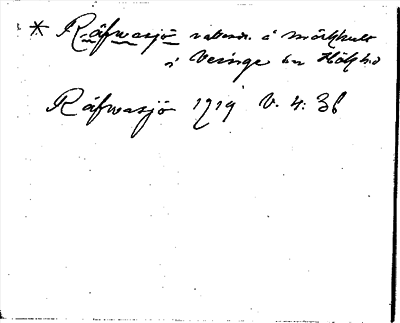 * Räfwasjö vattendr. å mörkhult
i Veinge sn Hök hd
Räfwasjö 1719 V. 4: 36